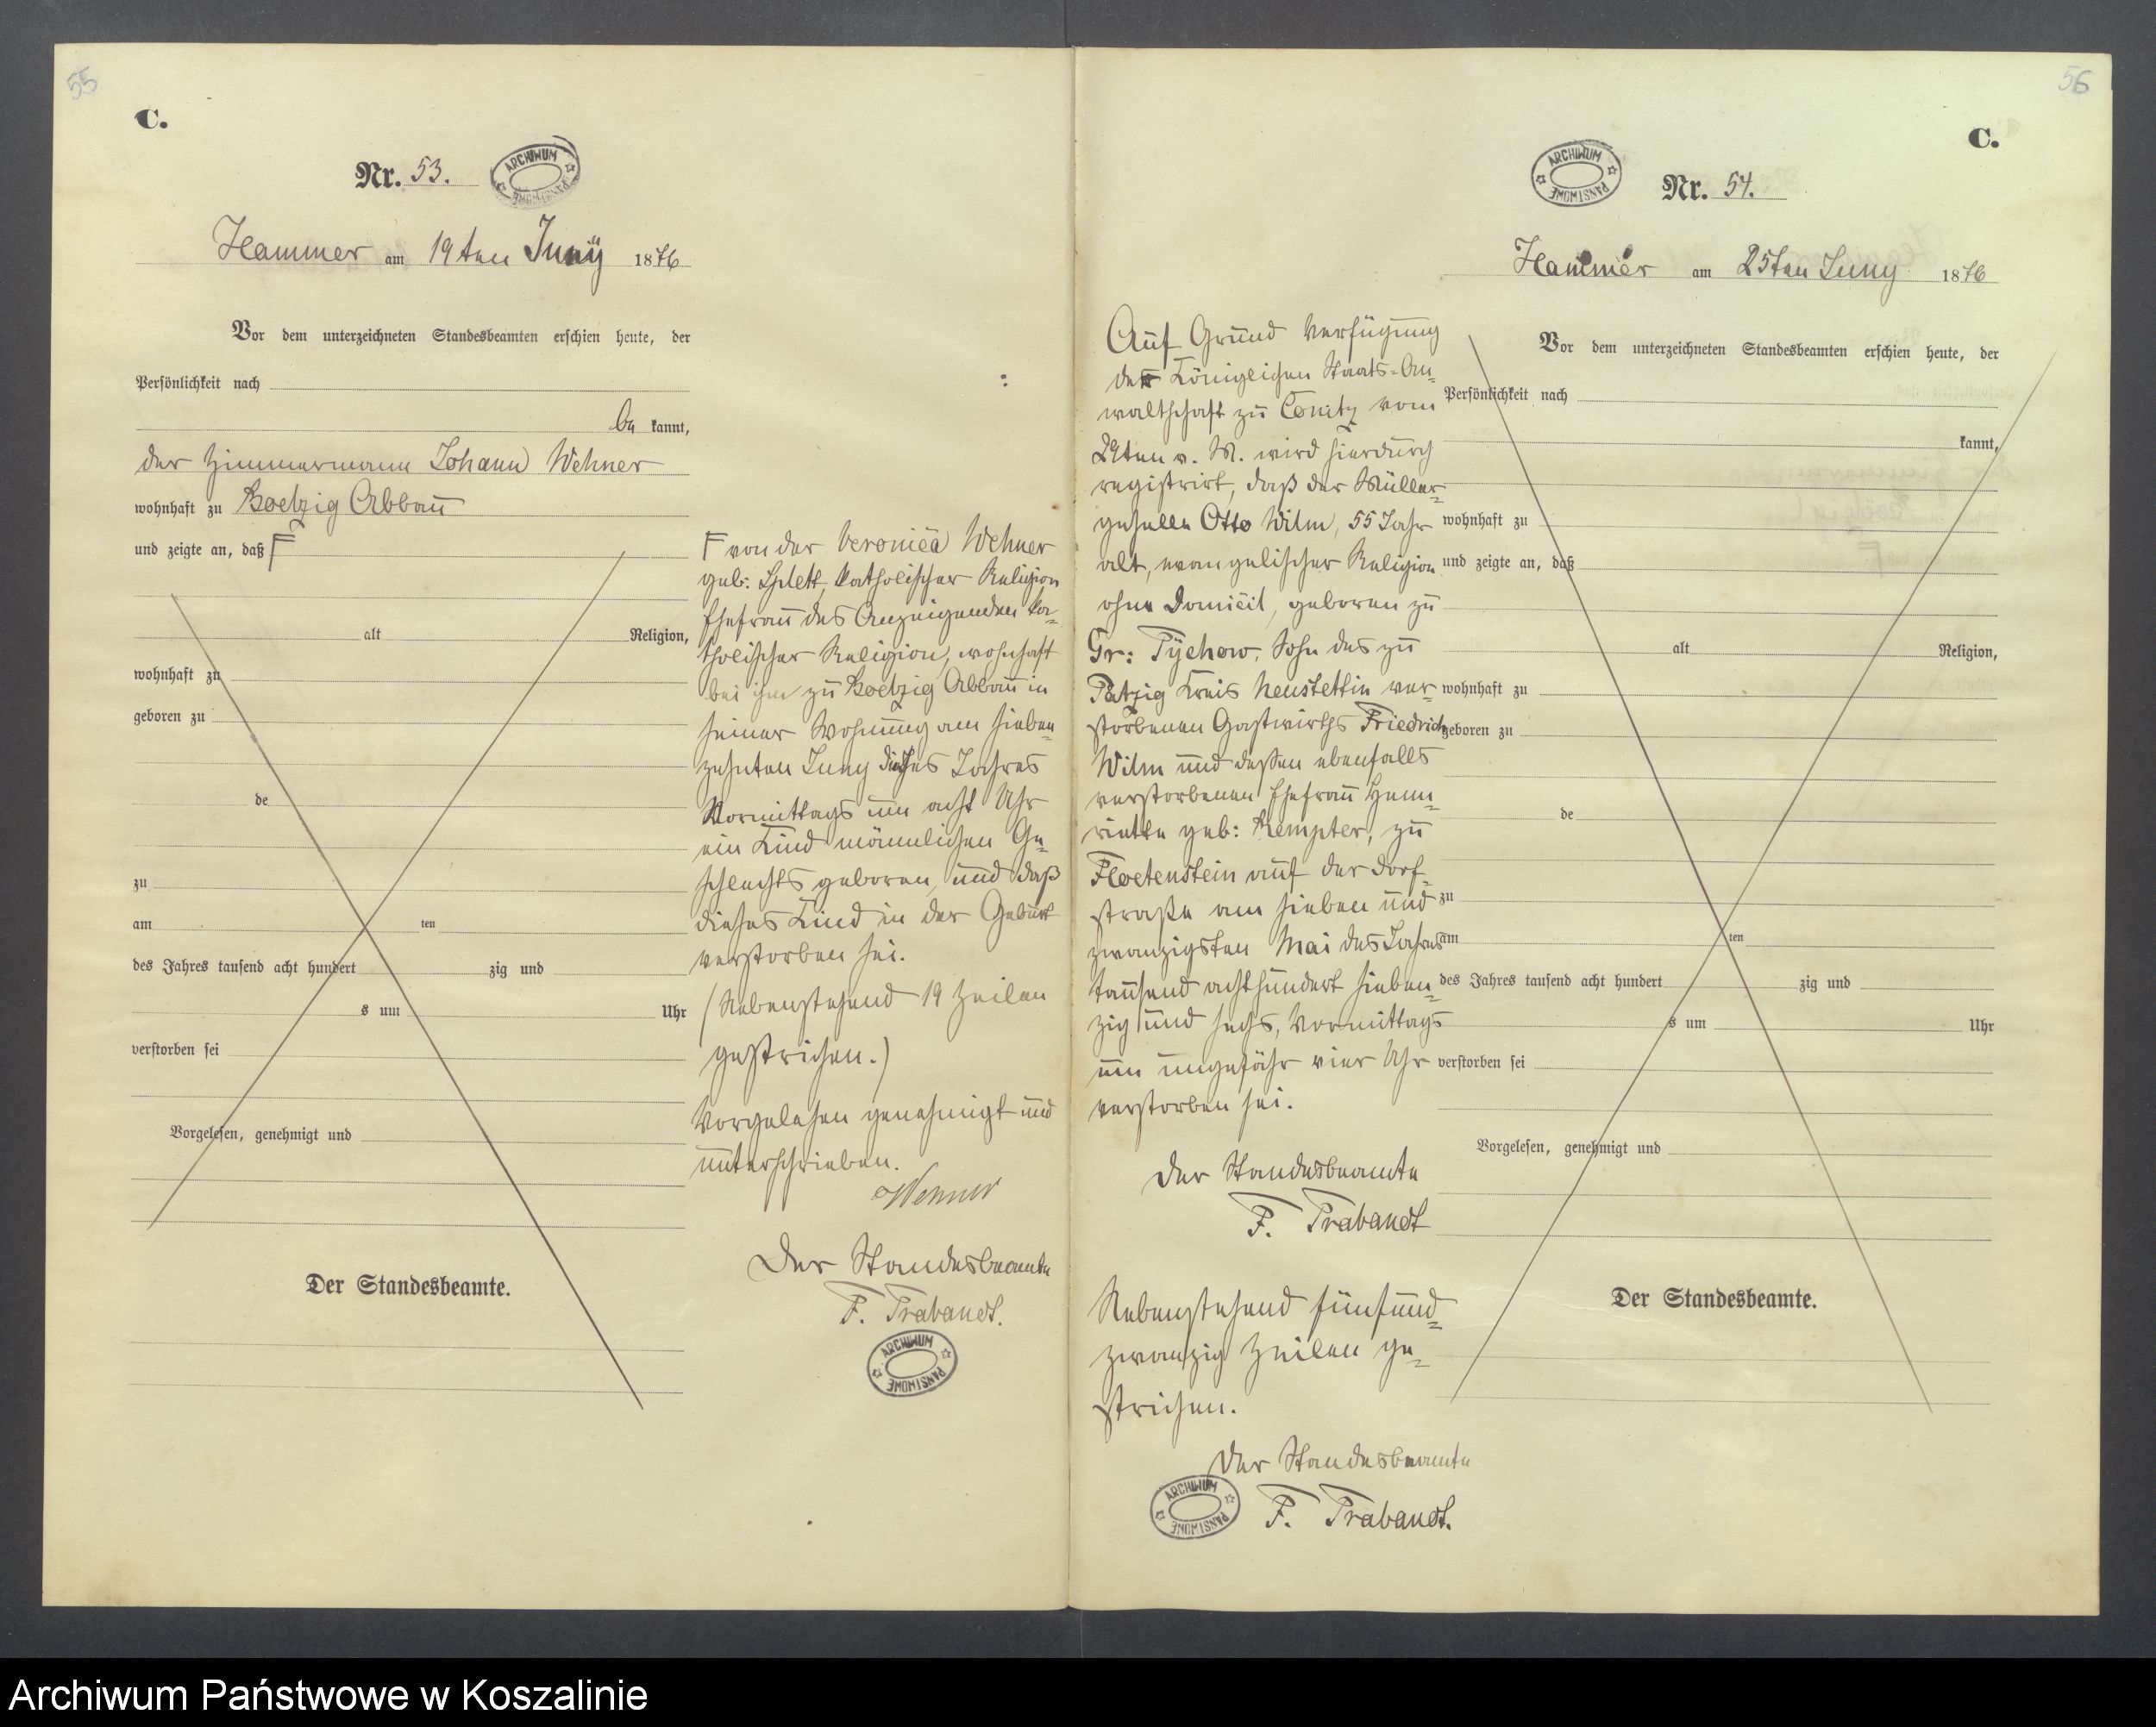 55
C.
Nr. 53.
ARCHIWUM PAŃSTWOWE
Hammer am 19ten Juny 1876
Vor dem unterzeichneten Standesbeamten erschien heute, der
Persönlichkeit nach
be kannt,
der Zimmermann Johann Wehner
wohnhaft zu Koetzig Abbau
und zeigte an, daß F
alt Religion,
wohnhaft zu
geboren zu
de
zu
am ten
des Jahres tausend acht hundert zig und
s um Uhr
verstorben sei
Vorgelesen, genehmigt und
Der Standesbeamte.
F von der Veronica Wehner
geb: katholischer Religion
Ehefrau des Anzeigenden ka-
tholischer Religion, wohnhaft
bei ihm zu Koetzig Abbau in
seiner Wohnung am sieben-
zehnten Juny dieses Jahres
Vormittags um acht Uhr
ein Kind männlichen Ge-
schlechts geboren, und daß
dieses Kind in der Geburt
verstorben sei.
(Nebenstehend 19 Zeilen
gestrichen.)
Vorgelesen genehmigt und
unterschrieben.
Wehner
Der Standesbeamte
F. Trabandt.
ARCHIWUM PAŃSTWOWE
56
C.
ARCHIWUM PAŃSTWOWE
Nr. 54.
Hammer am 25ten Juny 1876
Auf Grund Verfügung
der Königlichen Staats-An-
waltschaft zu Conitz vom
29ten v. M. wird hierdurch
registrirt, daß der Müller-
geselle Otto Wilm, 55 Jahr
alt, evangelischer Religion
ohne Domicil, geboren zu
Gr: Tychow, Sohn des zu
Patzig Kreis Neustettin ver-
storbenen Gastwirths Friedrich
Wilm und dessen ebenfalls
verstorbenen Ehefrau Hen-
riette geb: Kempter, zu
Floetenstein auf der Dorf-
straße am sieben und
zwanzigsten Mai des Jahres
tausend achthundert sieben-
zig und sechs, Vormittags
um ungefähr vier Uhr
verstorben sei.
Der Standesbeamte
F. Trabandt
Nebenstehend fünfund-
zwanzig Zeilen ge-
strichen.
Der Standesbeamte
F. Trabandt.
ARCHIWUM PAŃSTWOWE
Vor dem unterzeichneten Standesbeamten erschien heute, der
Persönlichkeit nach
kannt,
wohnhaft zu
und zeigte an, daß
alt Religion,
wohnhaft zu
geboren zu
de
zu
am ten
des Jahres tausend acht hundert zig und
s um Uhr
verstorben sei
Vorgelesen, genehmigt und
Der Standesbeamte.
Archiwum Państwowe w Koszalinie